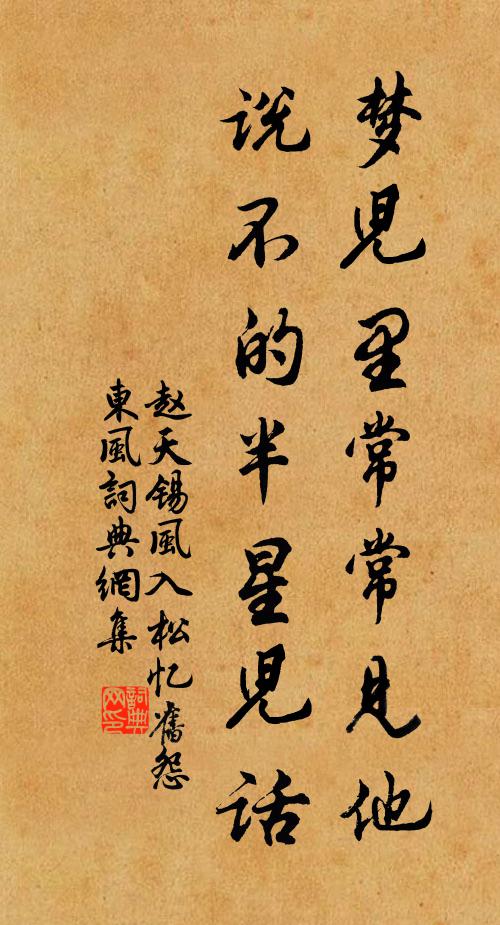 梦兒里常常見他
说不的半星兒话
赵天锡風入松忆舊怨
東風詞典網集
詞典网印